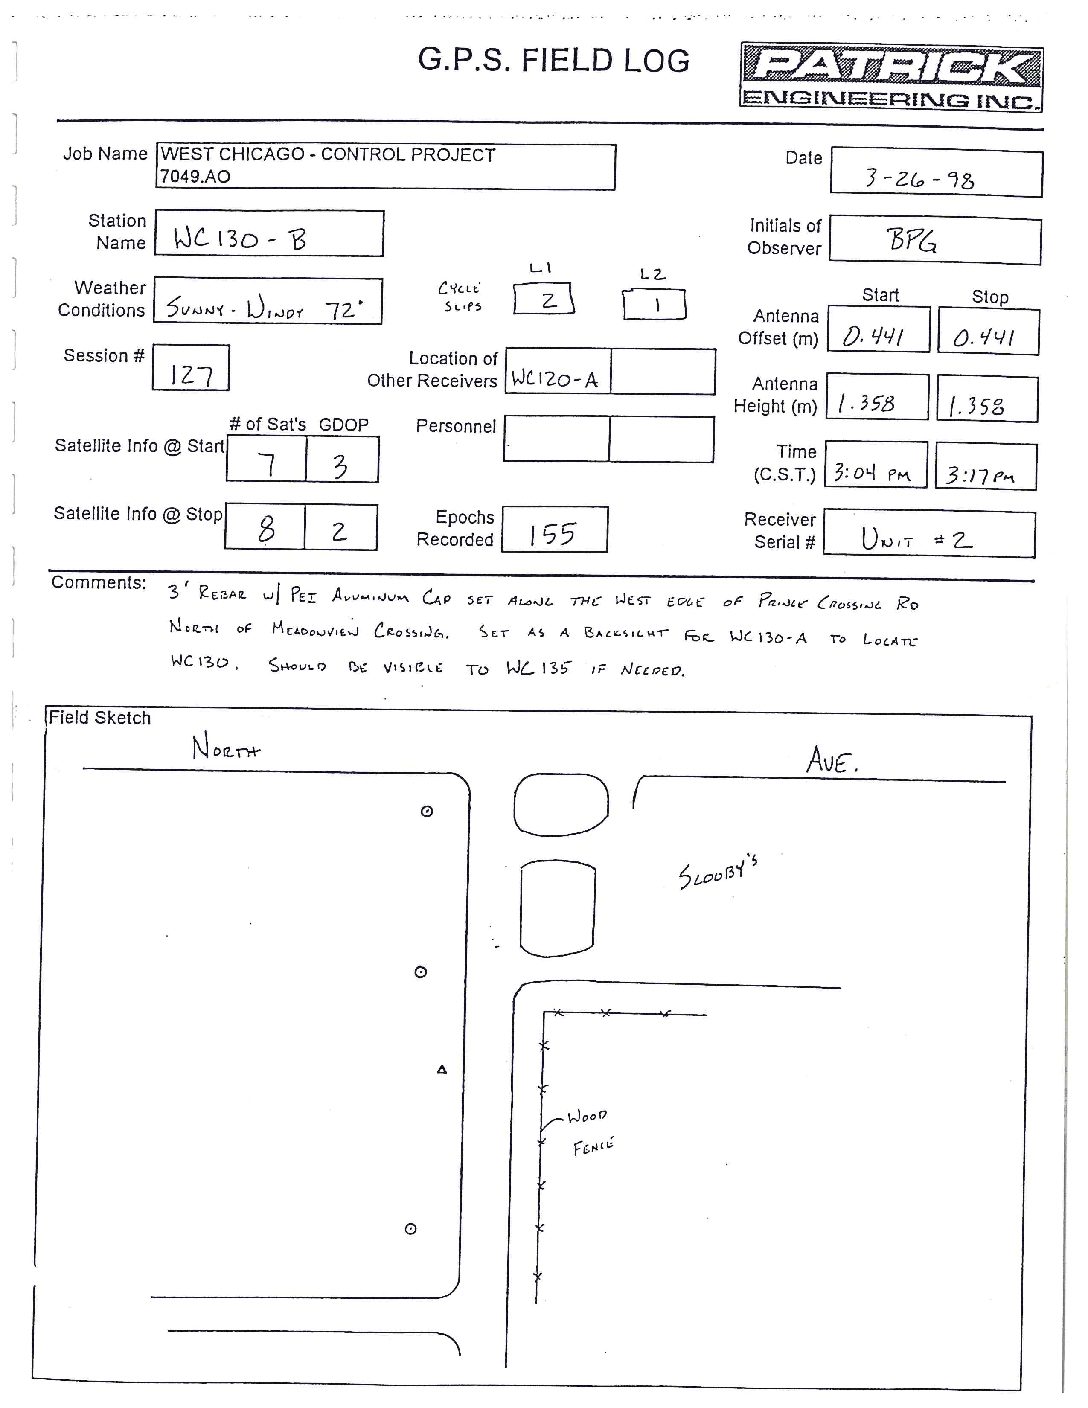 G.P.S. FIELD LOG
PATRICK
ENGINEERING INC.
Job Name WEST CHICAGO - CONTROL PROJECT
7049.AO
Date 3-26-98
Station Name WC130-B
Initials of Observer BPG
Weather Conditions SUNNY - WINDY 72°
CYCLE SLIPS L1 2 L2 1
Start Stop
Antenna Offset (m) 0.441 0.441
Session # 127
Location of Other Receivers WC120-A
Antenna Height (m) 1.358 1.358
# of Sat's GDOP
Satellite Info @ Start 7 3
Personnel
Time (C.S.T.) 3:04 PM 3:17 PM
Satellite Info @ Stop 8 2
Epochs Recorded 155
Receiver Serial # UNIT #2
Comments: 3' REBAR W/ PEI ALUMINUM CAP SET ALONG THE WEST EDGE OF PRINCE CROSSING RD
NORTH OF MEADOWVIEW CROSSING. SET AS A BACKSIGHT FOR WC130-A TO LOCATE
WC130. SHOULD BE VISIBLE TO WC135 IF NEEDED.
Field Sketch
NORTH AVE.
WOOD
FENCE